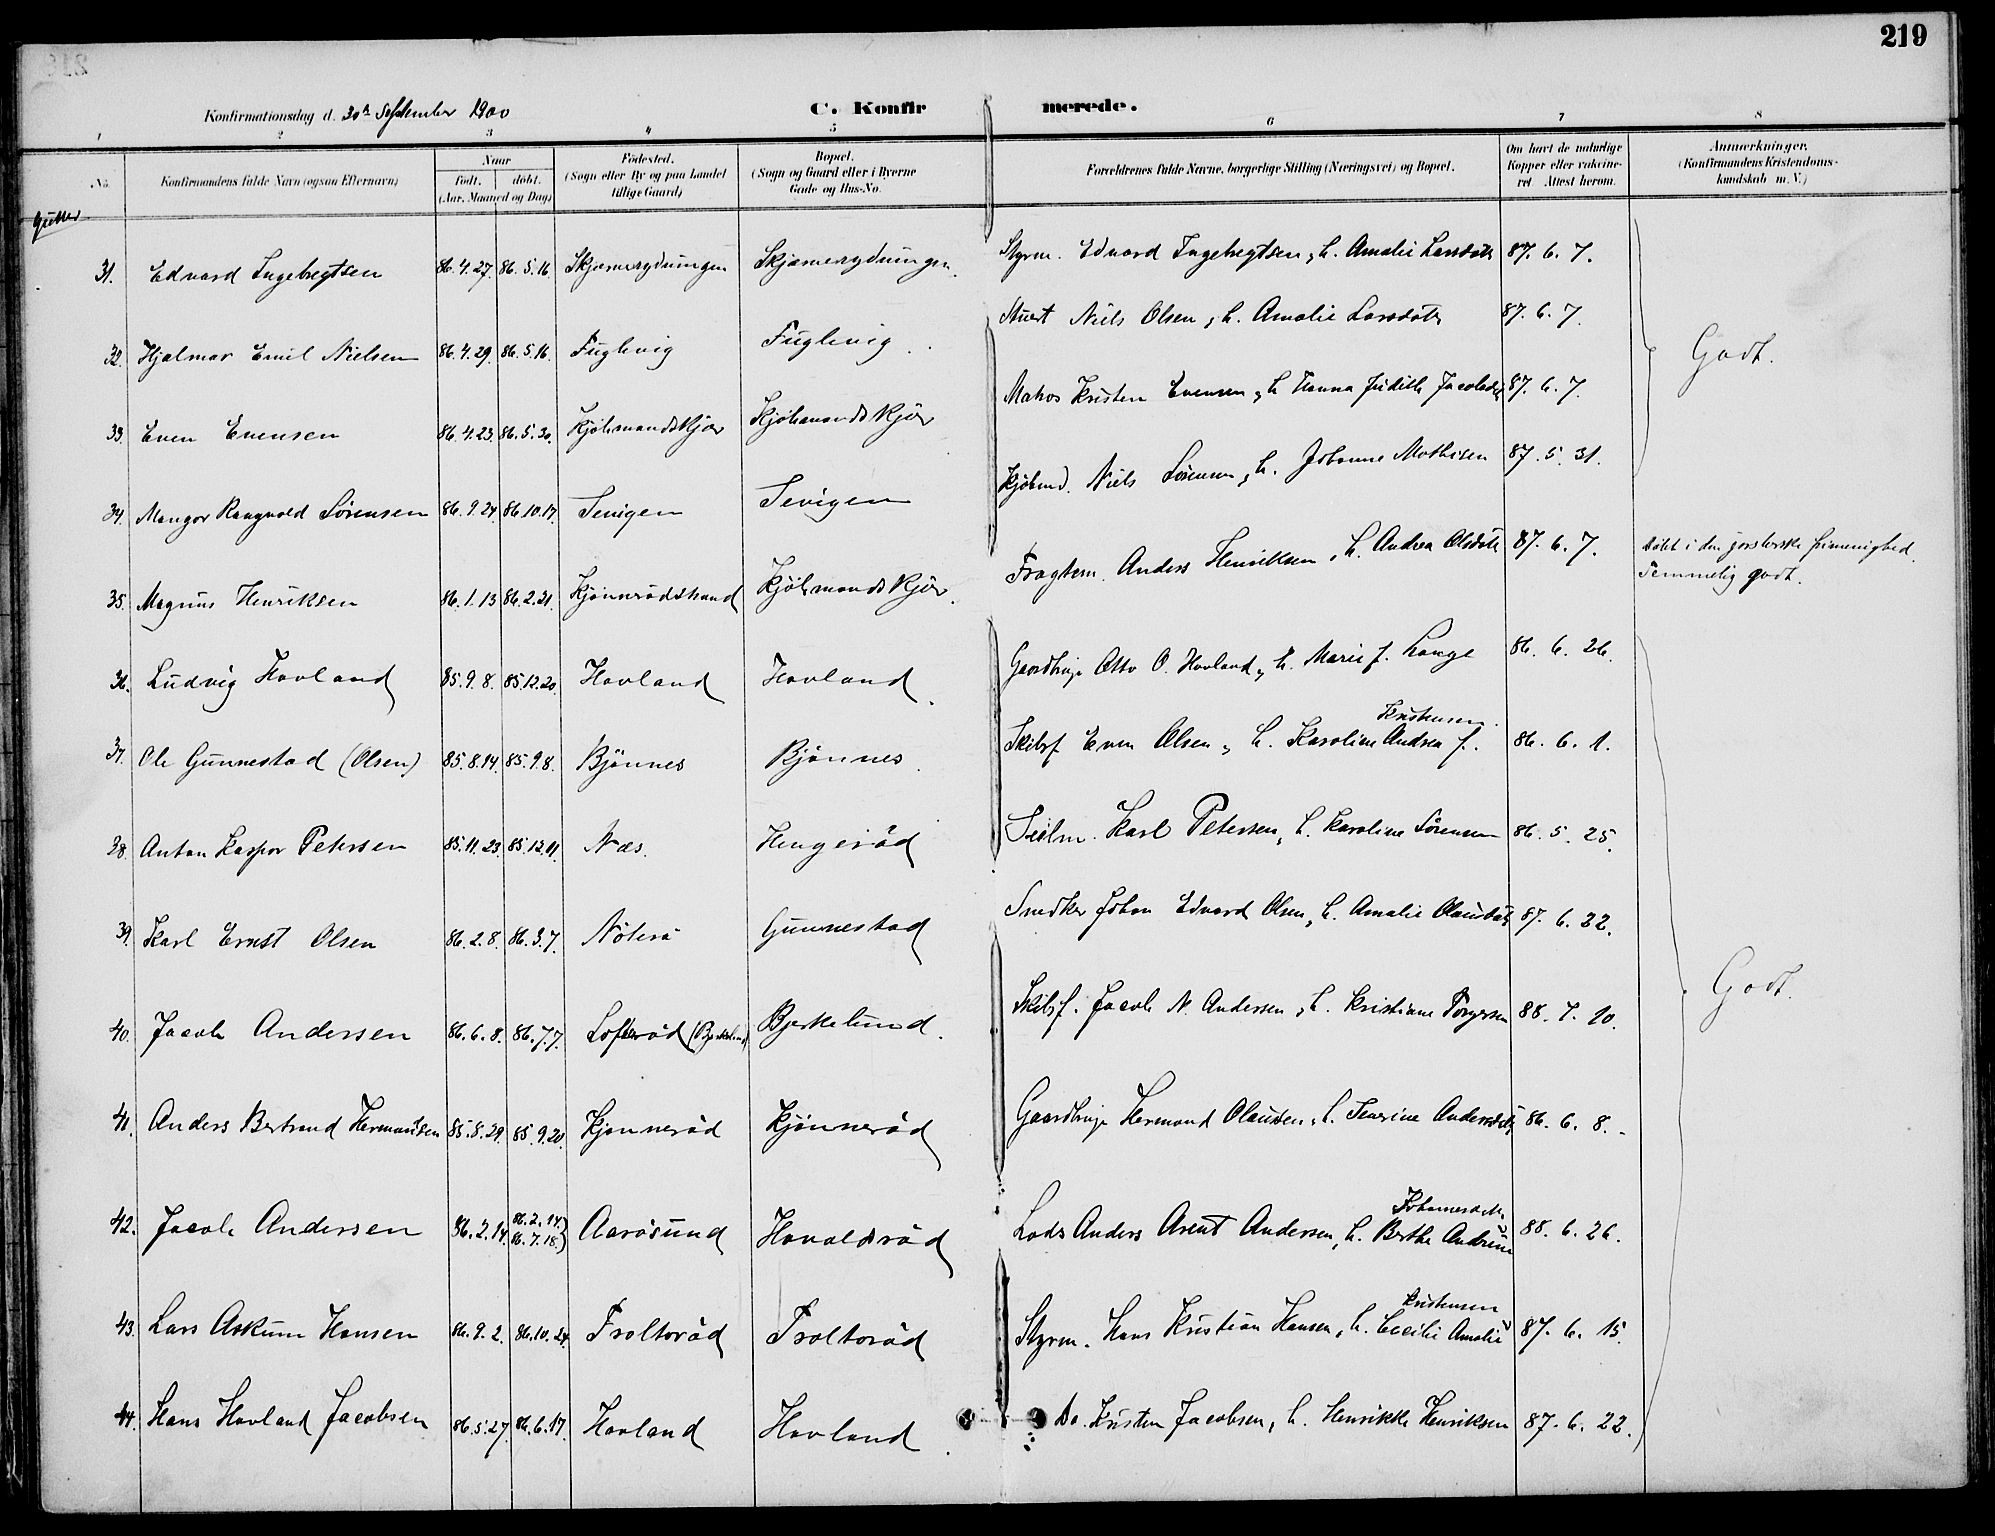 219
Konfirmationsdag d. 30te September 1900 C. Konfirmerede.
1 2 3 4 5 6 7 8
No. Konfirmandens fulde Navn (ogsaa Efternavn) Naar født. døbt. (Aar, Maaned og Dag) Fødested. (Sogn eller By og paa Landet tillige Gaard) Bopæl. (Sogn og Gaard eller i Byerne Gade og Hus-No. Forældrenes fulde Navne, borgerlige Stilling (Næringsvei) og Bopæl. Om havt de naturlige Kopper eller vaccineret. Attest herom. Anmærkninger. (Konfirmandens Kristendomskundskab m. V.)
Gutter
31. Edvard Ingebregtsen 86.4.27. 86.5.16. Skjærerydningen Skjærerydningen. Styrm. Edvard Ingebregtsen, h. Amalie Larsdatr 87. 6. 7.
32. Hjalmar Emil Nielsen 86.4.29. 86.5.16. Fuglevig Fuglevig. Stuert Niels Olsen, h. Amalie Larsdatr 87. 6. 7. Godt.
33. Even Evensen 86.4.23. 86.5.30. Kjøbmandskjær Kjøbmandskjær Matros Kristen Evensen, h. Hanna Judith Jacobsdtr 87. 6. 7.
34. Mangor Rangvald Sørensen 86.9.24. 86.10.17. Tevigen Tevigen Kjøbmd. Niels Sørensen, h. Johanne Mathisen 87. 5. 31.
35. Magnus Henriksen 86.1.13 86.2.21. Kjønnerødstrand Kjøbmandskjær. Fragtem. Anders Henriksen, h. Andrea Olsdatr 87. 6. 7. Døbt i den jarlsberske frimenighed. Temmelig godt.
36. Ludvig Havland 85.9.8. 85.12.20. Havland Havland. Gaardbrugr Otto O. Havland, h. Marie f. Lange 86. 6. 26.
37. Ole Gunnestad (Olsen) 85.8.14. 85.9.8. Bjønnes Bjønnes. Skibsf. Even Olsen, h. Karoline Andrea f. Kristensen. 86. 6. 1.
38. Anton Kaspar Petersen 85.11.23. 85.12.11. Næs. Hengerød Seilm. Karl Petersen, h. Karoline Sørensen 86. 5. 25.
39. Karl Ernst Olsen 86.2.8. 86.3.7. Nøterø Gunnestad Snedker Johan Edvard Olsen, h. Amalie Olausdatr 87. 6. 22.
40. Jacob Andersen 86.6.8. 86.7.7. Lofterød (Bjerkelund) Bjerkelund. Skibsf. Jacob N. Andersen, h. Kristiane Torgersen 88. 7. 10. Godt.
41. Anders Bertrand Hermandsen 85.8.29. 85.9.20. Kjønnerød Kjønnerød Gaardbrugr Hermand Olausen, h. Severine Andersdatr 86. 6. 8.
42. Jacob Andersen 86.2.14. 86.2.14. 86.7.18.) Aarøsund Havaldsrød Lods Anders Arent Andersen, h. Berthe Andrine Johannesdatr 88. 6. 26.
43. Lars Askum Hansen 86.9.2. 86.10.24. Froltorød Froltorød Styrm. Hans Kristian Hansen, h. Cecilie Amalie Kristensen 87. 6. 15.
44. Hans Havland Jacobsen 86.5.27. 86.6.17. Havland Havland. Do. Kristen Jacobsen, h. Henrikke Henriksen 87. 6. 22.